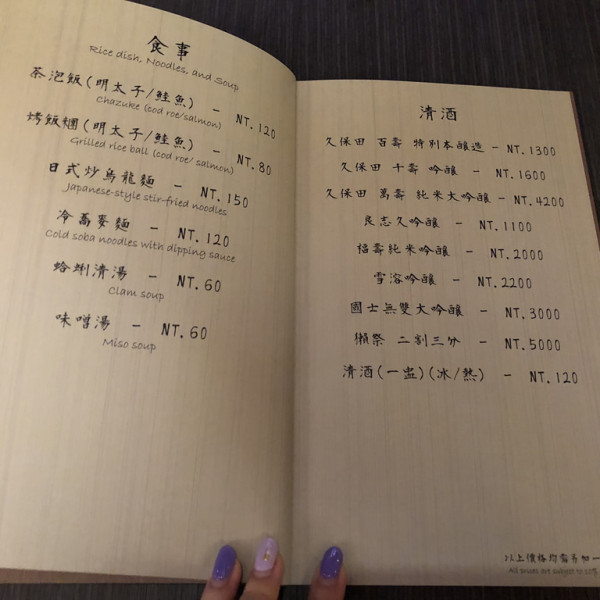 食事
Rice dish, Noodles, and Soup
茶泡飯(明太子/鮭魚) - NT.120
Chazuke (cod roe/salmon)
烤飯糰(明太子/鮭魚) - NT.80
Grilled rice ball (cod roe/ salmon)
日式炒烏龍麵 - NT.150
Japanese-style stir-fried noodles
冷蕎麥麵 - NT.120
Cold soba noodles with dipping sauce
蛤蜊清湯 - NT.60
Clam soup
味噌湯 - NT.60
Miso soup
清酒
久保田 百壽 特別本釀造 - NT.1300
久保田 千壽 吟釀 - NT.1600
久保田 萬壽 純米大吟釀 - NT.4200
良志久吟釀 - NT.1100
福壽純米吟釀 - NT.2000
雪溶吟釀 - NT.2200
國士無雙大吟釀 - NT.3000
獺祭 二割三分 - NT.5000
清酒(一盅)(冰/熱) - NT.120
以上價格均需另加一
All prices are subject to 10%